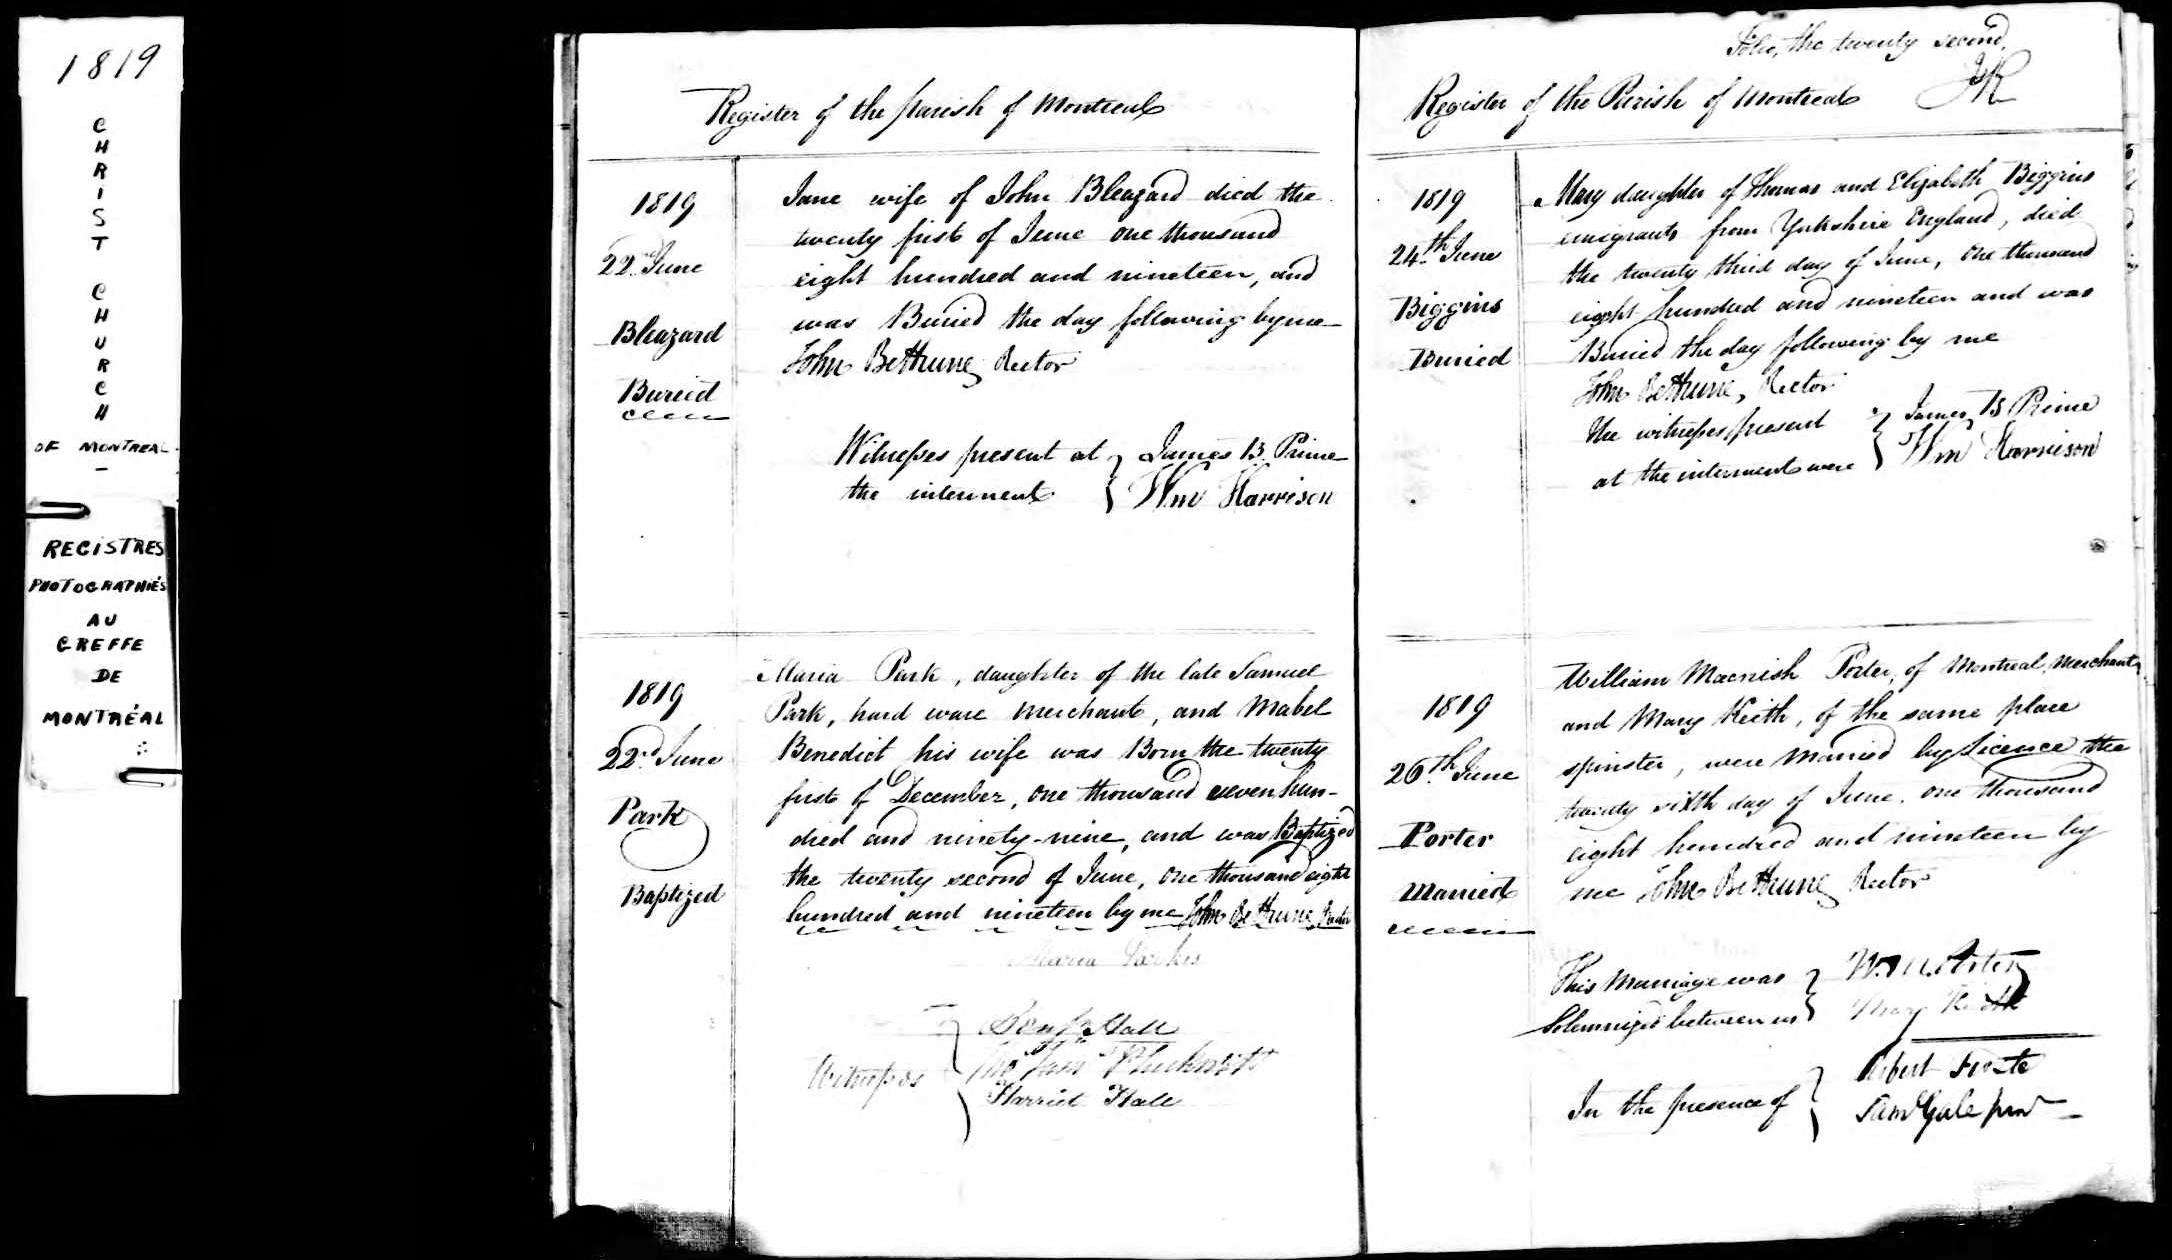 1819
CHRIST
CHURCH
OF MONTREAL
REGISTRES
PHOTOGRAPHIÉS
AU
GREFFE
DE
MONTRÉAL
Register of the parish of Montreal
1819
22nd June
Bleazard
Buried
Jane wife of John Bleazard died the
twenty first of June one thousand
eight hundred and nineteen, and
was Buried the day following by me
John Bethune, Rector
Witnesses present at
the interment
James B. Prime
Wm Harrison
1819
22nd June
Park
Baptized
Maria Park, daughter of the late Samuel
Park, hard ware merchant, and Mabel
Benedict his wife was Born the twenty
first of December, one thousand seven hun-
dred and ninety-nine, and was Baptized
the twenty second of June, one thousand eight
hundred and nineteen by me John Bethune, Rector
Maria
Witnesses
Hall
Harriet Hall
Folio, the twenty second,
Register of the Parish of Montreal
1819
24th June
Biggins
Buried
Mary daughter of Thomas and Elizabeth Biggins
emigrants from Yorkshire England, died
the twenty third day of June, one thousand
eight hundred and nineteen and was
Buried the day following by me
John Bethune, Rector
The witnesses present
at the interment were
James B Prime
Wm Harrison
1819
26th June
Porter
Married
William Macnish Porter, of Montreal, Merchant,
and Mary Keith, of the same place
spinster, were Married by Licence the
twenty sixth day of June, one thousand
eight hundred and nineteen by
me John Bethune, Rector
This Marriage was
Solemnized between us
W. M. Porter
Mary Keith
In the presence of
Saml Gale